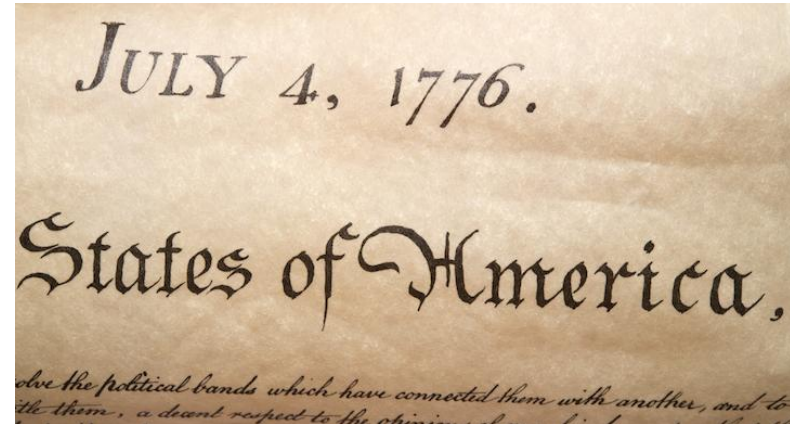 JULY 4, 1776.
States of America,
olve the political bands which have connected them with another, and to
itle them, a decent respect to the opinions